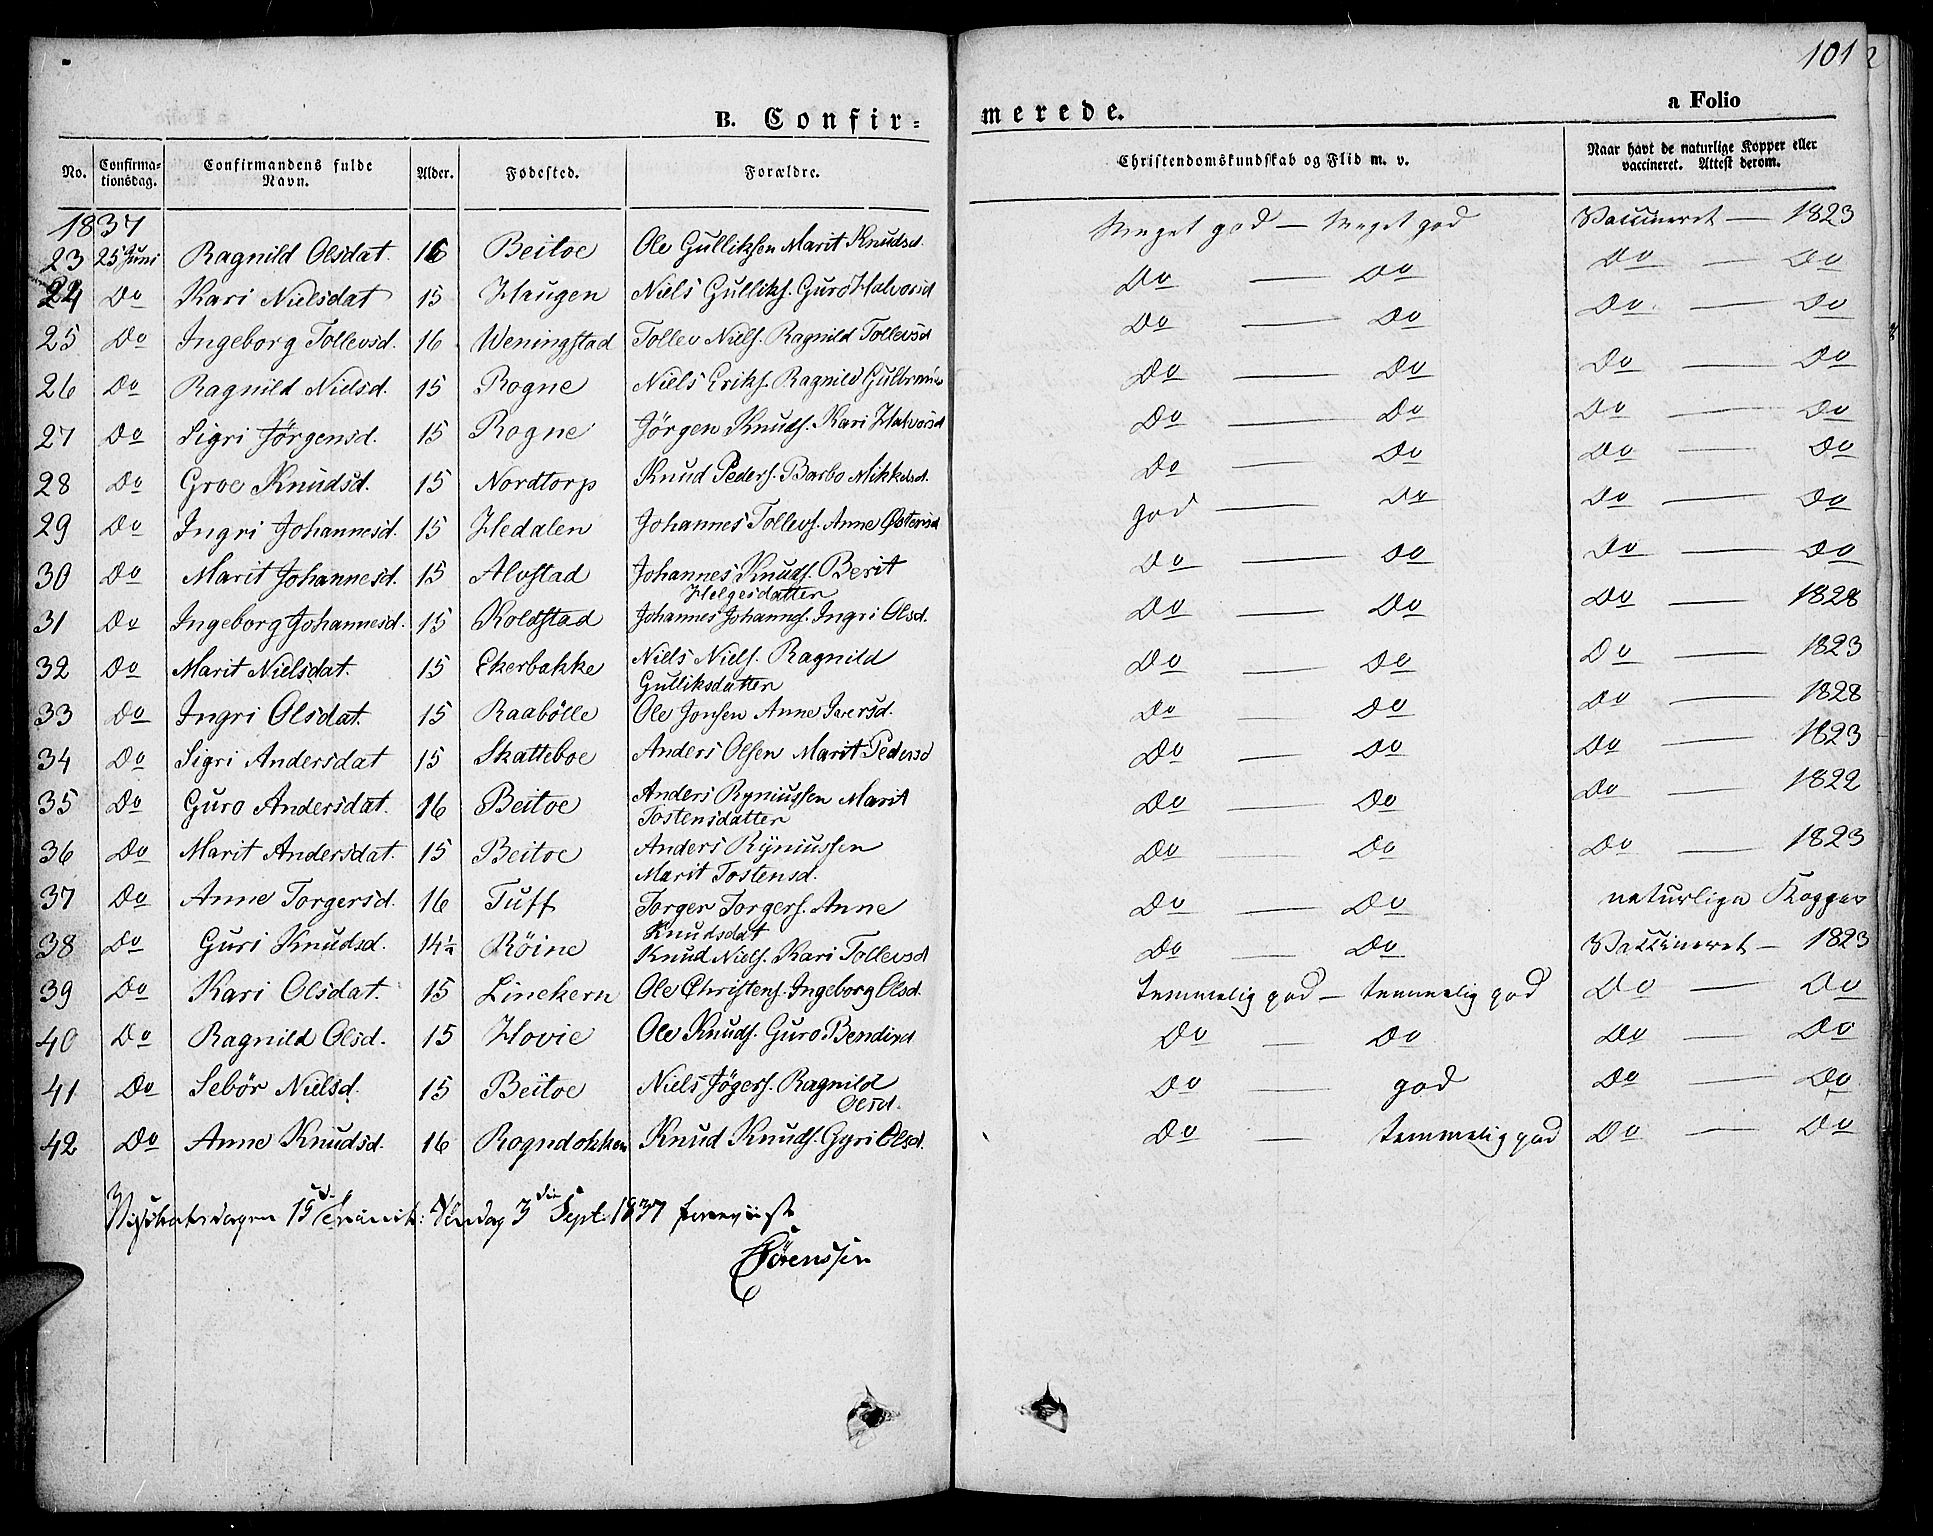 101
2
a Folio
B. Confir=
merede.
No. Confirma-tionsdag. Confirmandens fulde Navn. Alder. Fødested. Forældre. Christendomskundskab og Flid m. v. Naar havt de naturlige Kopper eller vaccineret. Attest derom.
1837
23 25 Juni Ragnild Olsdat. 16 Beitoe Ole Gulliksen Marit Knudsd. Meget god — Meget god Vaccineret — 1823
24 Do Kari Nielsdat 15 Haugen Niels Gulliks. Guro Halvorsd Do — Do Do — Do
25 Do Ingeborg Tollevsd. 16 Weningstad Tollev Niels. Ragnild Tollevsd Do — Do Do — Do
26 Do Ragnild Nielsd. 15 Rogne Niels Eriks. Ragnild Do — Do Do — Do
27 Do Sigri Jörgensd. 15 Rogne Jörgen Knuds. Kari Halvorsd Do — Do Do — Do
28 Do Groe Knudsd. 15 Nordtorp Knud Peders. Barbo Mikkelsd. Do — Do Do — Do
29 Do Ingri Johannesd. 15 Hedalen Johannes Tollevs. Anne Østensd god — Do Do — Do
30 Do Marit Johannesd. 15 Alvstad Johannes Knuds. Berit Do — Do Do — Do
Helgesdatter
31 Do Ingeborg Johannesd. 15 Koldstad Johannes Johannes. Ingri Olsd. Do — Do Do — 1828
32 Do Marit Nielsdat. 15 Ekerbakke Niels Niels. Ragnild Do — Do Do — 1823
Gulliksdatter
33 Do Ingri Olsdat. 15 Raabölle Ole Jonsen Anne Iversd. Do — Do Do — 1828
34 Do Sigri Andersdat 15 Skatteboe Anders Olsen Marit Pedersd Do — Do Do — 1823
35 Do Guro Andersdat. 16 Beitoe Anders Ryniussen Marit Do — Do Do — 1822
Tostensdatter
36 Do Marit Andersdat. 15 Beitoe Anders Ryniussen Do — Do Do — 1823
Marit Tostensd.
37 Do Anne Torgersd. 16 Tuff Torger Torgers. Anne Do — Do naturlige Kopper
Knudsdat
38 Do Guri Knudsd. 14½ Röine Knud Niels. Kari Tollevsd Do — Do Vaccineret — 1823
39 Do Kari Olsdat. 15 Linekern Ole Christens. Ingeborg Olsd. temmelig god — temmelig god Do — Do
40 Do Ragnild Olsd. 15 Hovie Ole Knuds. Guro Bendixd Do — Do Do — Do
41 Do Sebör Nielsd. 15 Beitoe Niels Jögers. Ragnild Do — god Do — Do
Olsd.
42 Do Anne Knudsd. 16 Rogndokken Knud Knuds. Gyri Olsd. Do — temmelig god Do — Do
15 Søndag 3 die Sept. 1837
Sörenssen